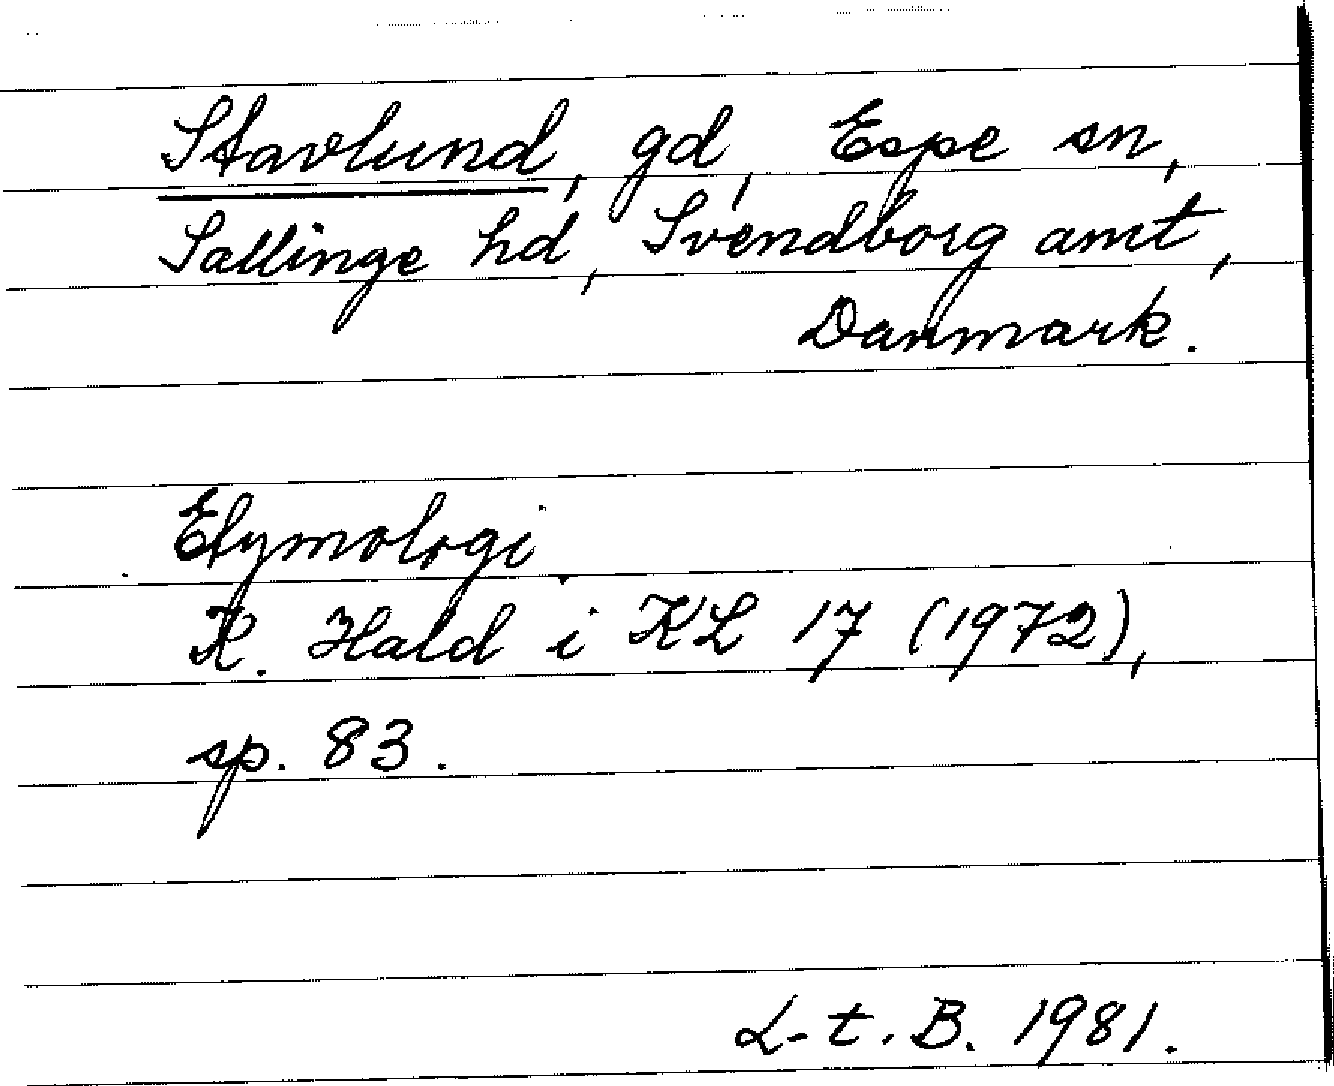 Stavlund, gd, Espe sn,
Sallinge hd, Svendborg amt,
Danmark.
Etymologi.
K. Hald i KL 17 (1972),
sp. 83.
L-t. B. 1981.